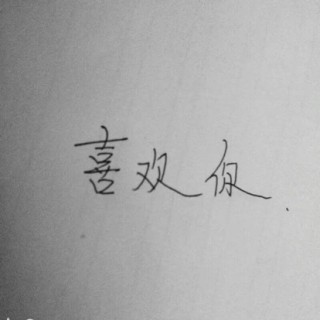 喜欢你.